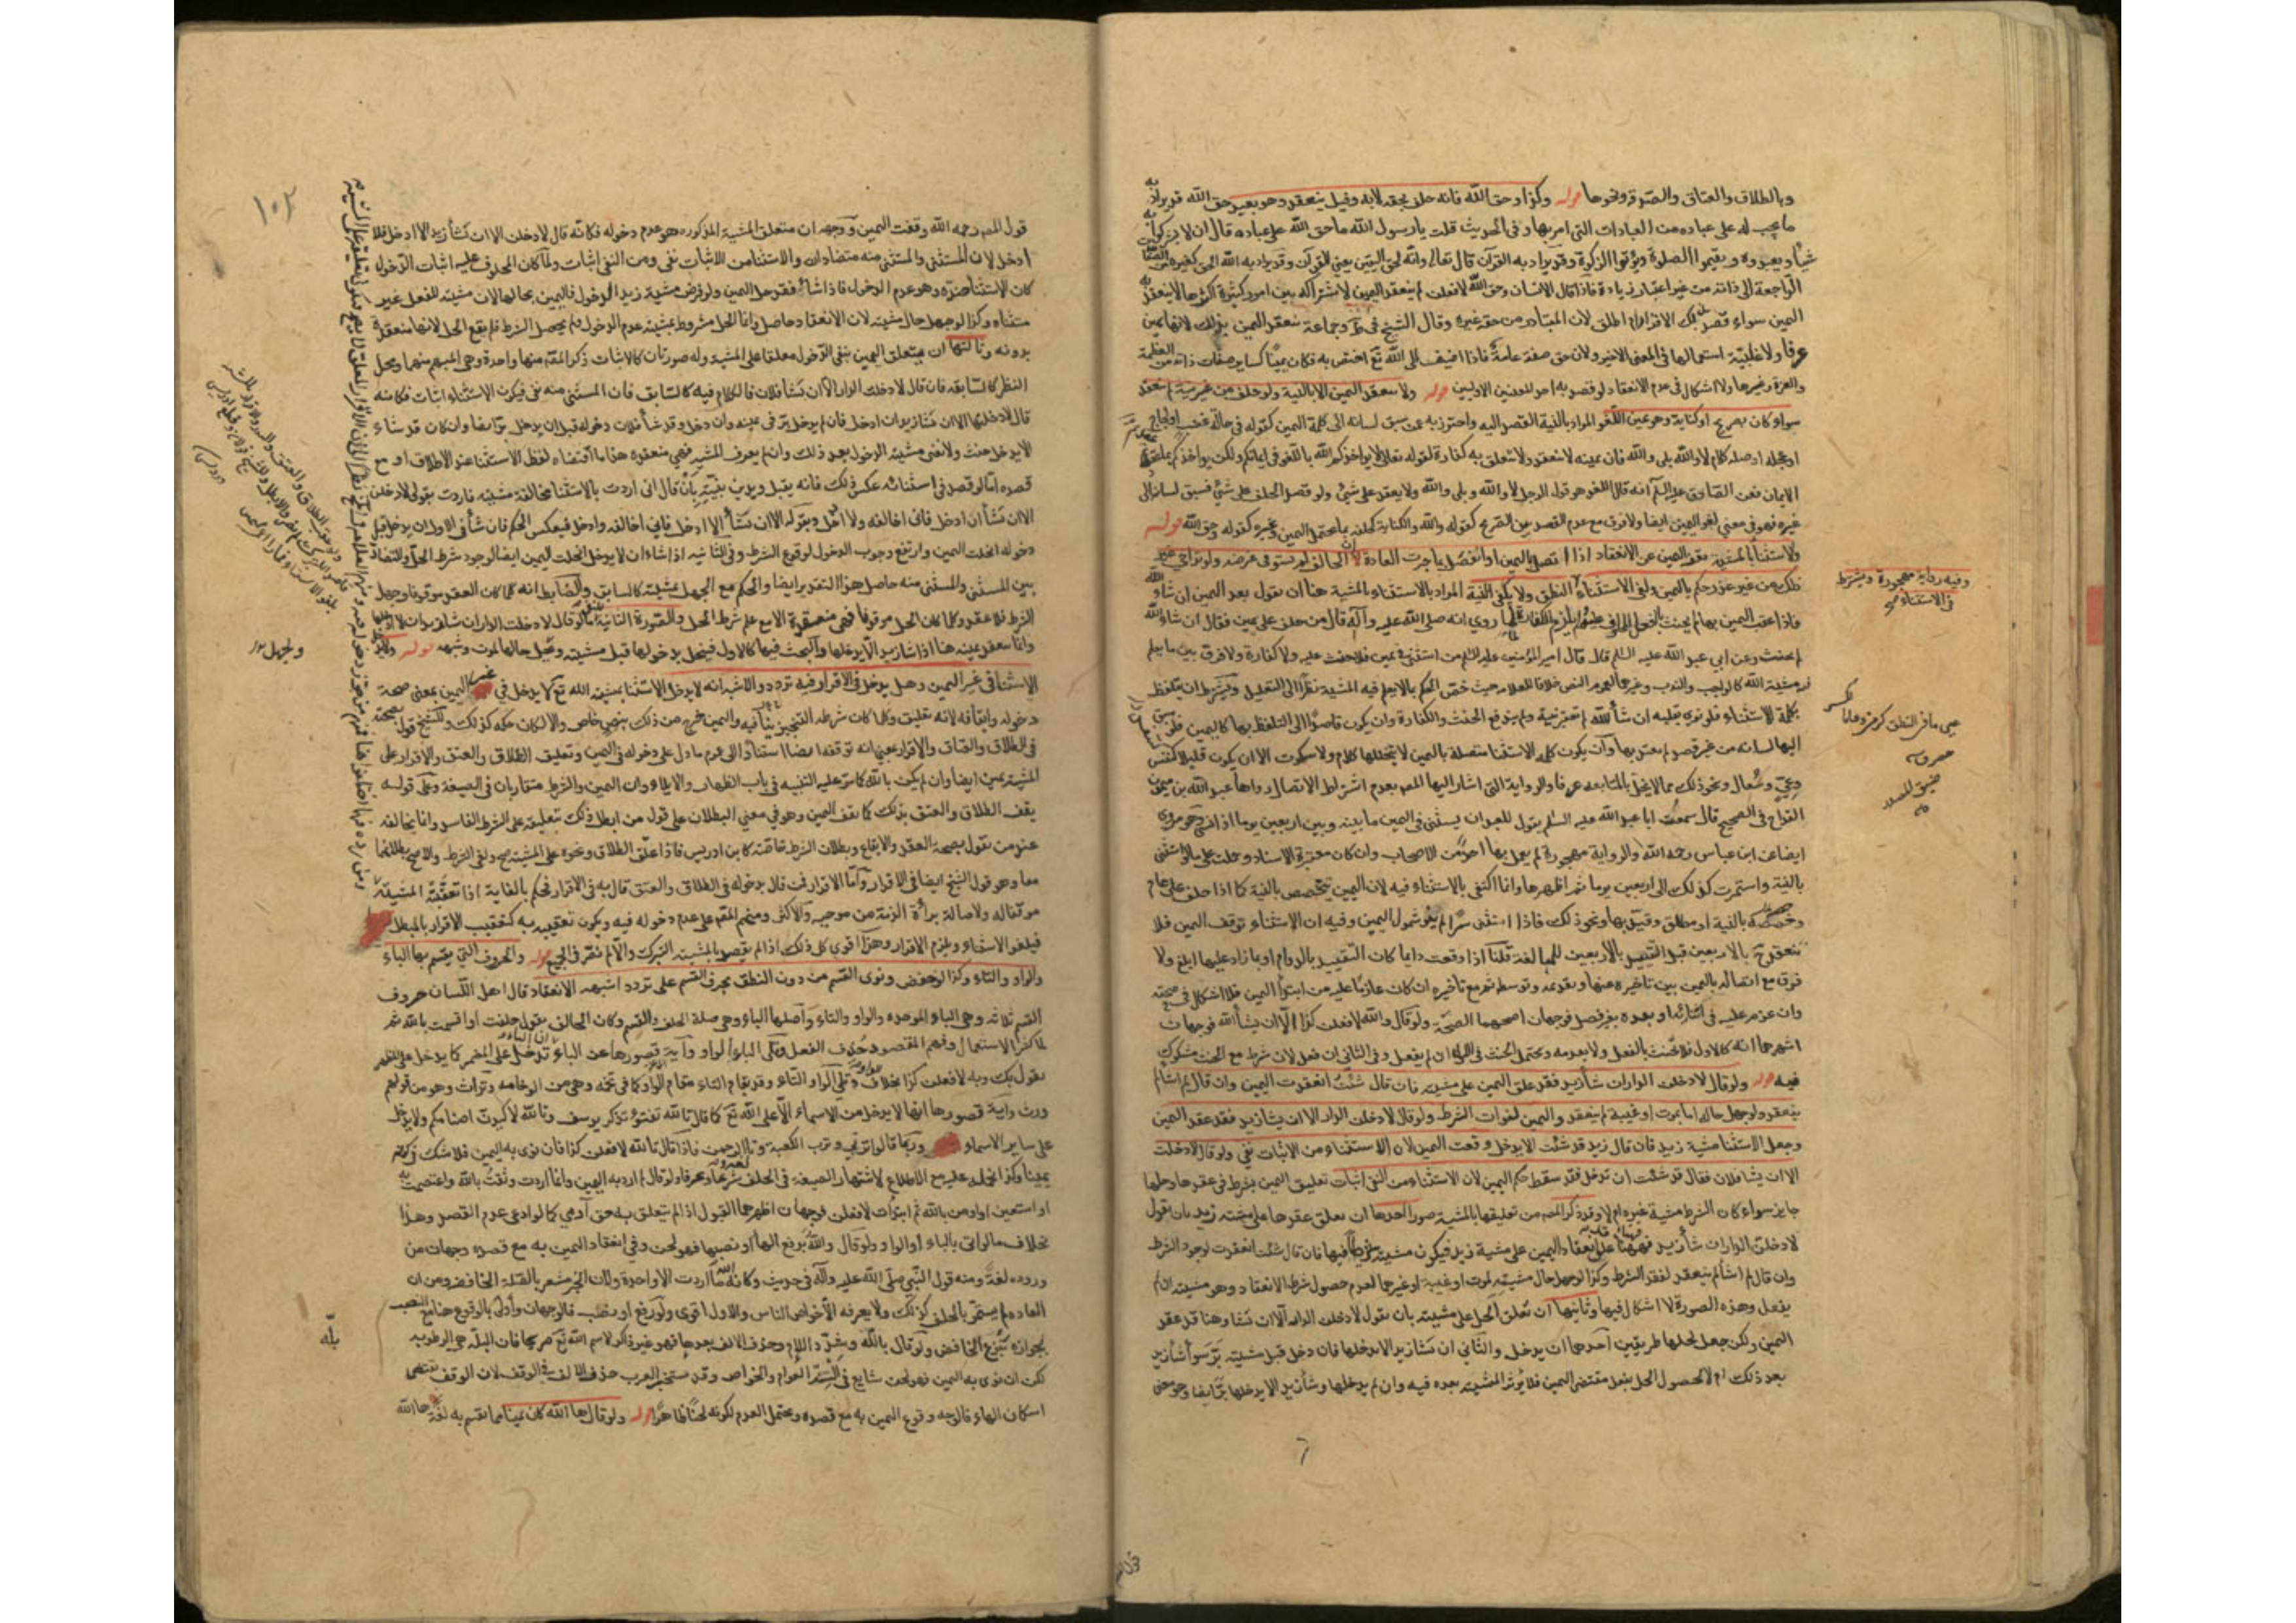 وبالطلاق والعتاق والصدقة ونحوها قوله وكذا وحق الله فانه حلف بحقه لا به وقيل ينعقد وهو بعيد حق الله قد يراد به
ما يجب له على عباده من العبادات التي امر بها وفي الحديث قلت يا رسول الله ما حق الله على عباده قال ان لا يشركوا به
شيأ ويعبدوه ويقيموا الصلوة ويؤتوا الزكوة وقد يراد به القرآن قال تعالى وانه لحق اليقين يعني القرآن وقد يراد به الله الحق كغيره من الصفات
الراجعة الى ذاته من غير اعتبار زيادة فاذا قال الانسان وحق الله لافعلن لم ينعقد اليمين لاشتراكه بين امور كثيرة اكثرها لا ينعقد به
اليمين سواء قصد تلك الافراد ام اطلق لان المتبادر من حقه غيره وقال الشيخ في ط وجماعة ينعقد اليمين بذلك لانها يمين
عرفا ولاغلبية استعمالها في المعنى الاخير ولان حق صفة عامة فاذا اضيف الى الله تع اختص به فكان يمينا كساير صفات ذاته من العظمة
والعزة وغيرها ولا اشكال في عدم الانعقاد لو قصد به احد المعنيين الاولين قوله ولا ينعقد اليمين الا بالنية ولو حلف من غير نية لم ينعقد
سواء كان بصريح او كناية وهو يمين اللغو المراد بالنية القصد اليه واحترز به عن سبق لسانه الى كلمة اليمين كقوله في حالة غضب او لجاج
او عجلة او صلة كلام لا والله بلى والله فان يمينه لا ينعقد ولا يتعلق به كفارة لقوله تعالى لا يواخذكم الله باللغو في ايمانكم ولكن يواخذكم بما عقدتم
الايمان فعن الصادق عليه السلام انه قال اللغو هو قول الرجل لا والله وبلى والله ولا يعقد على شئ ولو قصد الحلف على شئ فسبق لسانه الى
غيره فهو في معنى لغو اليمين ايضا ولا فرق مع عدم القصد بين الصريح كقوله والله والكناية كحلفه بما يحتمل اليمين وغيره كقوله وحق الله قوله
والاستثنا بالمشية يقف اليمين عن الانعقاد اذا اتصل باليمين او انفصل بما جرت العادة ان الحالف لم يستوف غرضه ولو تراخى عن
ذلك من غير عذر حكم باليمين ولغى الاستثناء النطق ولا يكفي النية المراد بالاستثناء بالمشية هنا ان يقول بعد اليمين ان شاء الله
فاذا عقب اليمين بها لم يحنث بالفعل المحلوف عليه ولم يلزم الكفارة لما روي انه صلى الله عليه وآله قال من حلف على يمين فقال ان شاء الله
لم يحنث وعن ابي عبد الله عليه السلم قال قال امير المؤمنين عليه السلم من استثنى في يمين فلا حنث عليه ولا كفارة ولا فرق بين ما يعلم
فيه مشية الله كالواجب والندب وغيرهما لعموم النص خلافا للعلامة حيث خص الحكم بما لا يعلم فيه المشية نظرا الى التعليل ويشترط ان يتلفظ
بكلمة الاستثناء فلو نوى بقلبه ان شاء الله لم تعتبر نيته ولم يندفع الحنث والكفارة وان يكون قاصدا الى التلفظ بها كاليمين فلو سبق
اليها لسانه من غير قصد لم يعتد بها وان يكون كلمة الاستثنا متصلة باليمين لا يتخللها كلام ولا سكوت الا ان يكون قليلا كتنفس
وعي وسعال ونحو ذلك مما لا يخل بالمتابعة عرفا والرواية التي اشار اليها المصم بعدم اشتراط الاتصال رواها عبد الله بن ميمون
القداح في الصحيح قال سمعت ابا عبد الله عليه السلم يقول للعبد ان يستثني في اليمين ما بينه وبين اربعين يوما اذا نسي وهو مروي
ايضا عن ابن عباس رحمه الله والرواية مهجورة لم يعمل بها احد من الاصحاب وان كانت معتبرة الاسناد وحملت على ما لو استثنى
بالنية واستمرت كذلك الى اربعين يوما ثم اظهرها وانما اكتفى بالاستثناء فيه لان اليمين يتخصص بالنية كما اذا حلف على عام
وخصصه بالنية او مطلق وقيد بها ونحو ذلك فاذا استثنى سرا لم ينو شمول اليمين وفيه ان الاستثناء توقف اليمين فلا
تنعقد ح بالاربعين قبل التقييد بالاربعين للمبالغة قلنا اذا وقعت دايما كان التقييد بالدوام او بما زاد عليها ابلغ ولا
فرق مع اتصاله باليمين بين تاخيره عنها وتقدمه وتوسطه ثم مع تاخيره ان كان عازما عليه من ابتداء اليمين فلا اشكال في صحته
وان عزم عليه في اثنائه او بعده بغير فصل فوجهان اصحهما الصحة ولو قال والله لافعلن كذا الا ان يشأ الله فوجهان
اشهرهما انه كالاول فلا يحنث بالفعل ولا بعدمه ويحتمل الحنث في الاول ان لم يفعل وفي الثاني ان فعل لان شرط منع الحنث مشكوك
فيه قوله ولو قال لادخلن الدار ان شأ زيد فقد علق اليمين على مشيته فان قال شئت انعقدت اليمين وان قال لم اشأ لم
ينعقد ولو جهل حاله اما بموت او غيبة لم ينعقد اليمين لفوات الشرط ولو قال لادخلن الدار الا ان يشأ زيد فقد عقد اليمين
وجعل الاستثنا مشية زيد فان قال زيد قد شئت الا يدخل وقعت اليمين لان الاستثناء من الاثبات نفي ولو قال لا دخلت
الا ان يشا فلان فقال قد شئت ان تدخل فقد سقط حكم اليمين لان الاستثناء من النفي اثبات تعليق اليمين بشرط في عقدها وحلها
جايز سواء كان الشرط مشية غيره ام لا وقد ذكر المصم من تعليقها بالمشية صورا احدها ان يعلق عقدها على مشية زيد بان يقول
لادخلن الدار ان شأ زيد فهنا علق انعقاد اليمين على مشية زيد فيكون مشيته شرطا فيها فان قال شئت انعقدت لوجود الشرط
وان قال لم اشأ لم ينعقد لفقد الشرط وكذا لو جهل حال مشيته لموت او غيبة او غيرهما لعدم حصول شرط الانعقاد وهو مشيته ان لم
يفعل وهذه الصورة لا اشكال فيها وثانيها ان تعلق الحل على مشيته بان يقول لادخلن الدار الا ان يشا وهنا قد عقد
اليمين ولكن جعل لحلها طريقين احدهما ان يدخل والثاني ان يشا زيد الا يدخلها فان دخل قبل مشيته بر سواء شأ زيد
بعد ذلك ام لا لحصول الحل بفعل مقتضى اليمين فلا يؤثر المشية بعده فيه وان لم يدخلها وشأ زيد الا يدخلها بر ايضا وهو معنى
وفيه رواية مهجورة ويشترط
في الاستثناء صح
١٠٢
قول المصم رحمه الله وقفت اليمين ووجهه ان متعلق المشية المذكورة هو عدم دخوله فكانه قال لادخلن الا ان يشأ زيد الا ادخل فلا
ادخل لان المستثنى والمستثنى منه متضادان والاستثنا من الاثبات نفي ومن النفي اثبات ولما كان المحلوف عليه اثبات الدخول
كان الاستثنا ضده وهو عدم الدخول فاذا شاء فقد حل اليمين ولو فرض مشية زيد الدخول فاليمين بحالها لان مشيته للفعل غير
مستثناه وكذا لو جهل حال مشيته لان الانعقاد حاصل وانما الحل مشروط بمشية عدم الدخول ولم يحصل الشرط فلم يقع الحل لانها منعقدة
بدونه وثالثها ان يتعلق اليمين بنفي الدخول معلقا على المشية وله صورتان كالاثبات ذكر المصم منها واحدة وهي المبهم منهما ومحل
النظر كالسابقة فان قال لا دخلت الدار الا ان يشأ فلان فالكلام فيه كالسابق فان المستثنى منه نفي فيكون الاستثناء اثبات فكانه
قال لا دخلتها الا ان يشأ زيد ان ادخل فان لم يدخل بر في يمينه وان دخل وقد شأ فلان دخوله قبل ان يدخل بر ايضا وان كان قد شاء
الا يدخل حنث ولا تغني مشيته الدخول بعد ذلك وان لم يعرف المشية فهي منعقدة هذا ما اقتضاه لفظ الاستثنا عند الاطلاق او مع
قصده اما لو قصد في استثنائه عكس ذلك فانه يقبل ويدين بنيته بان قال اني اردت بالاستثنا مخالفة مشيته فاردت بقولي لادخلن
الا ان يشأ ان ادخل فاني اخالفه ولا ادخل وبقوله الا ان يشأ الا ادخل فاني اخالفه وادخل فينعكس الحكم فان شأ في الاول ان يدخل قبل
دخوله انحلت اليمين وارتفع وجوب الدخول لوقوع الشرط وفي الثانية اذا شاء ان لا يدخل انحلت اليمين ايضا لوجود شرط الحل والتضاد
بين المستثنى والمستثنى منه حاصل هذا التقدير ايضا والحكم مع الجهل بمشيته كالسابق والضابط انه كلما كان العقد موقوفا وجهل
الشرط فلا عقد وكلما كان الحل موقوفا فهي منعقدة الا مع علم شرط الحل والصورة الثانية ما لو قال لا دخلت الدار ان شا فلان ان لا ادخلها
وانما ينعقد يمينه هنا اذا شا زيد الا يدخلها والبحث فيها كالاول فينحل بدخولها قبل مشيته وبجهل حالها لموت وشبهه قوله ولا يدخل
الاستثنا في غير اليمين وهل يدخل في الاقرار فيه تردد والاشبه انه لا يدخل الاستثنا بمشية الله تع كلا يدخل في غير اليمين بمعنى صحة
دخوله وايقافه لانه تعليق وكلما كان شرطه التنجيز ينافيه واليمين خرج من ذلك بنص خاص والا لكان حكمه كذلك وللشيخ قول بصحته
في الطلاق والعتاق والاقرار بمعنى انه توقفه ايضا استنادا الى عموم ما دل على دخوله في اليمين وتعليق الطلاق والعتق والاقرار على
المشية يمين ايضا وان لم يكن بالله كما مر عليه التنبيه في باب الظهار والايلاء وان اليمين والشرط متقاربان في الصيغة وعلى قوله
يقف الطلاق والعتق بذلك كما يقف اليمين وهو في معنى البطلان على قول من ابطل ذلك بتعليقه على الشرط الفاسد وانما يخالفه
عند من يقول بصحة العقد والايقاع وبطلان الشرط خاصة كابن ادريس فاذا علق الطلاق ونحوه على المشية صح ولغى الشرط والاصح بطلانهما
معا وهو قول الشيخ ايضا في الاقرار واما الاقرار فمن قال بدخوله في الطلاق والعتق قال به في الاقرار فحكم بالغايه اذا تعقبه المشية
موقتا له ولاصالة براة الذمة من موجبه والاكثر ومنهم المصم على عدم دخوله فيه ويكون تعقيبه به كتعقيب الاقرار بالمبطل
فيلغو الاستثناء ويلزم الاقرار وهذا اقوى كل ذلك اذا لم يقصد بالمشية التبرك والا لم تضر في الجميع قوله والحروف التي يقسم بها الباء
والواو والتاء وكذا لو خفض ونوى القسم من دون النطق بحرف القسم على تردد اشبهه الانعقاد قال اهل اللسان حروف
القسم ثلاثة وهي الباء الموحدة والواو والتاء واصلها الباء وهي صلة الحلف والقسم وكان الحالف يقول حلفت او اقسمت بالله ثم
لما كثر الاستعمال وفهم المقصود حذف الفعل ويلي الباء الواو وآية قصورها عن الباء ان الباء تدخل على المضمر كما يدخل على المظهر
يقول بك وبه لافعلن كذا بخلاف الواو ويلي الواو التاء وقد يقام التاء مقام الواو كما في تخمة وهي من الوخامة وتراث وهو من قولهم
ورث وآية قصورها انها لا يدخل من الاسماء الا على الله تع كما قال تالله تفتؤا تذكر يوسف وتالله لاكيدن اصنامكم ولا يدخل
على ساير الاسماء وربما قالوا تربي وترب الكعبة وتالرحمن فاذا قال تالله لافعلن كذا فان نوى به اليمين فلا شك في كونه
يمينا وكذا يحمل عليه مع الاطلاق لاشتهار الصيغة في الحلف شرعا وعرفا ولو قال لم ارد به اليمين وانما اردت وثقت بالله واعتصمت به
او استعين او اومن بالله ثم ابتدأت لافعلن فوجهان اظهرهما القبول اذا لم يتعلق به حق آدمي كما لو ادعى عدم القصد وهذا
بخلاف ما لو اتى بالباء او الواو ولو قال والله برفع الهاء او نصبها فهو لحن وفي انعقاد اليمين به مع قصده وجهان من
وروده لغة ومنه قول النبي صلى الله عليه وآله في حديث ركانة الله ما اردت الا واحدة ولان الجر مشعر بالصلة الخافضة ومن ان
العادة لم يستمر بالحلف كذلك ولا يعرفه الا خواص الناس والاول اقوى ولو رفع او نصب فالوجهان واولى بالوقوع هنا مع النصب
لجوازه بنزع الخافض ولو قال بالله وشدد اللام وحذف الالف بعدها فهو غير ذاكر لاسم الله تع صريحا فان البلة هي الرطوبة
لكن ان نوى به اليمين فهو لحن شايع في السنة العوام والخواص وقد يستجيز العرب حذف الالف في الوقف لان الوقف يقتضي
اسكان الهاء فالوجه وقوع اليمين به مع قصده ويحتمل العدم لكونه لحنا ظاهرا قوله ولو قال ها الله كان يمينا مما يقسم به لغة ها الله
بله